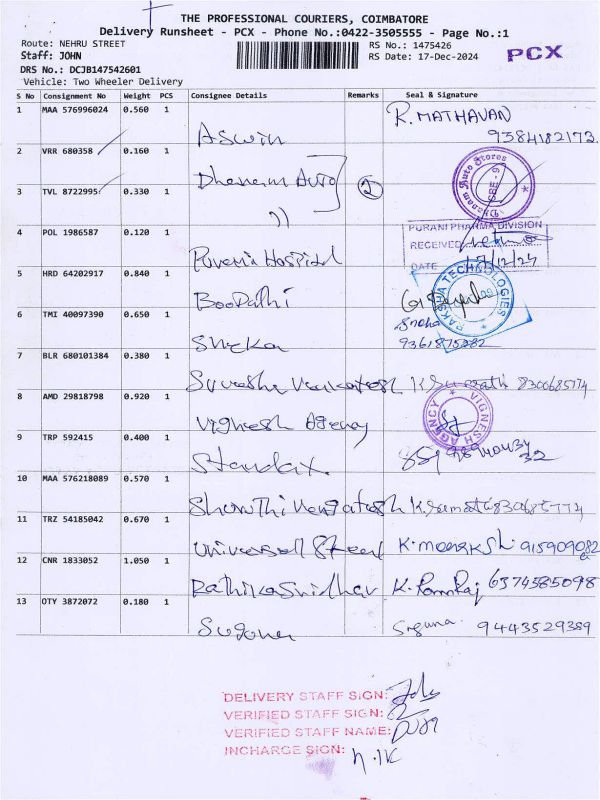 THE PROFESSIONAL COURIERS, COIMBATORE
Delivery Runsheet - PCX - Phone No.:0422-3505555 - Page No.:1
Route: NEHRU STREET
RS No.: 1475426
Staff: JOHN
RS Date: 17-Dec-2024
PCX
DRS No.: DCJB147542601
Vehicle: Two Wheeler Delivery
S No Consignment No Weight PCS Consignee Details Remarks Seal & Signature
1 MAA 576996024 0.560 1 Aswin R. MATHAVAN
9384182173
2 VRR 680358 0.160 1 Dhanam Auto
3 TVL 8722995 0.330 1 )) 2
Auto Stores
4 POL 1986587 0.120 1 Purani Hospital
PURANI PHARMA DIVISION
RECEIVED
DATE 17/12/24
5 HRD 64202917 0.840 1 Boopathi
RAKSHA TECHNOLOGIES
6 TMI 40097390 0.650 1 Sneka Sneha
9361875282
7 BLR 680101384 0.380 1 Suresh Venkatesh 8300685774
8 AMD 29818798 0.920 1 Vighesh Agency
VIGNESH AGENCY
9 TRP 592415 0.400 1 Standax
10 MAA 576218089 0.570 1 Shruthi Vengatesh
11 TRZ 54185042 0.670 1 Universal Steel 915909082
12 CNR 1833052 1.050 1 Rathika Sridhar K. RamRaj 6374585098
13 OTY 3872072 0.180 1 Suguna Suguna 9443529389
DELIVERY STAFF SIGN:
VERIFIED STAFF SIGN:
VERIFIED STAFF NAME:
INCHARGE SIGN: